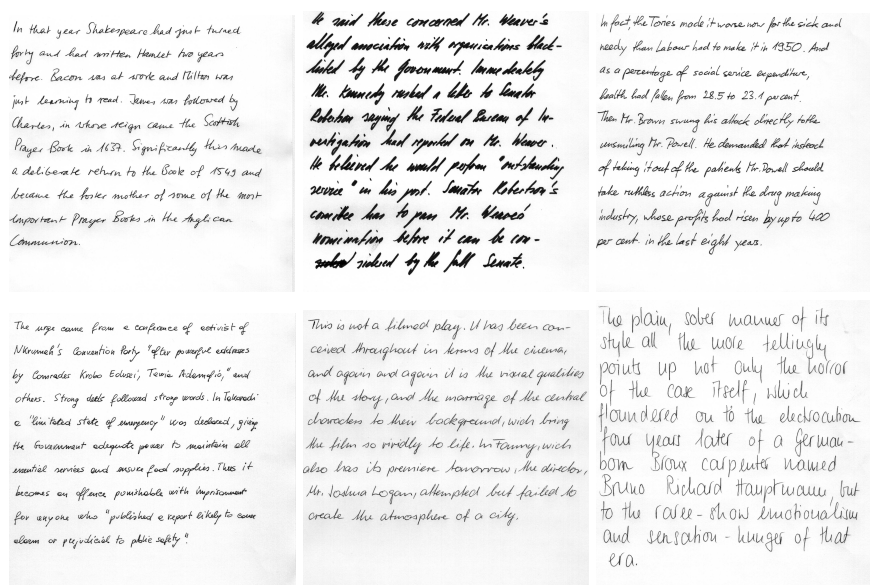 In that year Shakespeare had just turned
forty and had written Hamlet two years
before. Bacon was at work and Milton was
just learning to read. James was followed by
Charles, in whose reign came the Scottish
Prayer Book in 1637. Significantly this made
a deliberate return to the Book of 1549 and
became the foster mother of some of the most
important Prayer Books in the Anglican
Communion.
He said these concerned Mr. Weaver's
alleged association with organisations black-
listed by the Government. Immediately
Mr. Kennedy rushed a letter to Senator
Robertson saying the Federal Bureau of In-
vestigation had reported on Mr. Weaver.
He believed he would perform "outstanding
service" in his post. Senator Robertson's
comittee has to pass Mr. Weaver's
nomination before it can be con-
sidered by the full Senate.
In fact, the Tories made it worse now for the sick and
needy than Labour had to make it in 1950. And
as a percentage of social service expenditure,
health had fallen from 28.5 to 23.1 per cent.
Then Mr. Brown swung his attack directly to the
unsmiling Mr. Powell. He demanded that instead
of taking it out of the patients Mr. Powell should
take ruthless action against the drug making
industry, whose profits had risen by up to 400
per cent. in the last eight years.
The urge came from a conference of activist of
Nkrumah's Convention Party "after powerful addresses
by Comrades Krobo Edusei, Tawia Adamafio," and
others. Strong deeds followed strong words. In Takoradi
a "limited state of emergency" was declared, giving
the Government adequate power to maintain all
essential services and ensure food supplies. Thus it
becomes an offence punishable with imprisonment
for anyone who "published a report likely to cause
alarm or prejudicial to public safety".
This is not a filmed play. It has been con-
ceived throughout in terms of the cinema,
and again and again it is the visual qualities
of the story, and the marriage of the central
characters to their background, wich bring
the film so vividly to life. In Fanny, wich
also has its premiere tomorrow, the director,
Mr. Joshua Logan, attempted but failed to
create the atmosphere of a city.
The plain, sober manner of its
style all the more tellingly
points up not only the horror
of the case itself, which
floundered on to the electrocution
four years later of a German-
born Bronx carpenter named
Bruno Richard Hauptmann, but
to the raree-show emotionalism
and sensation-hunger of that
era.